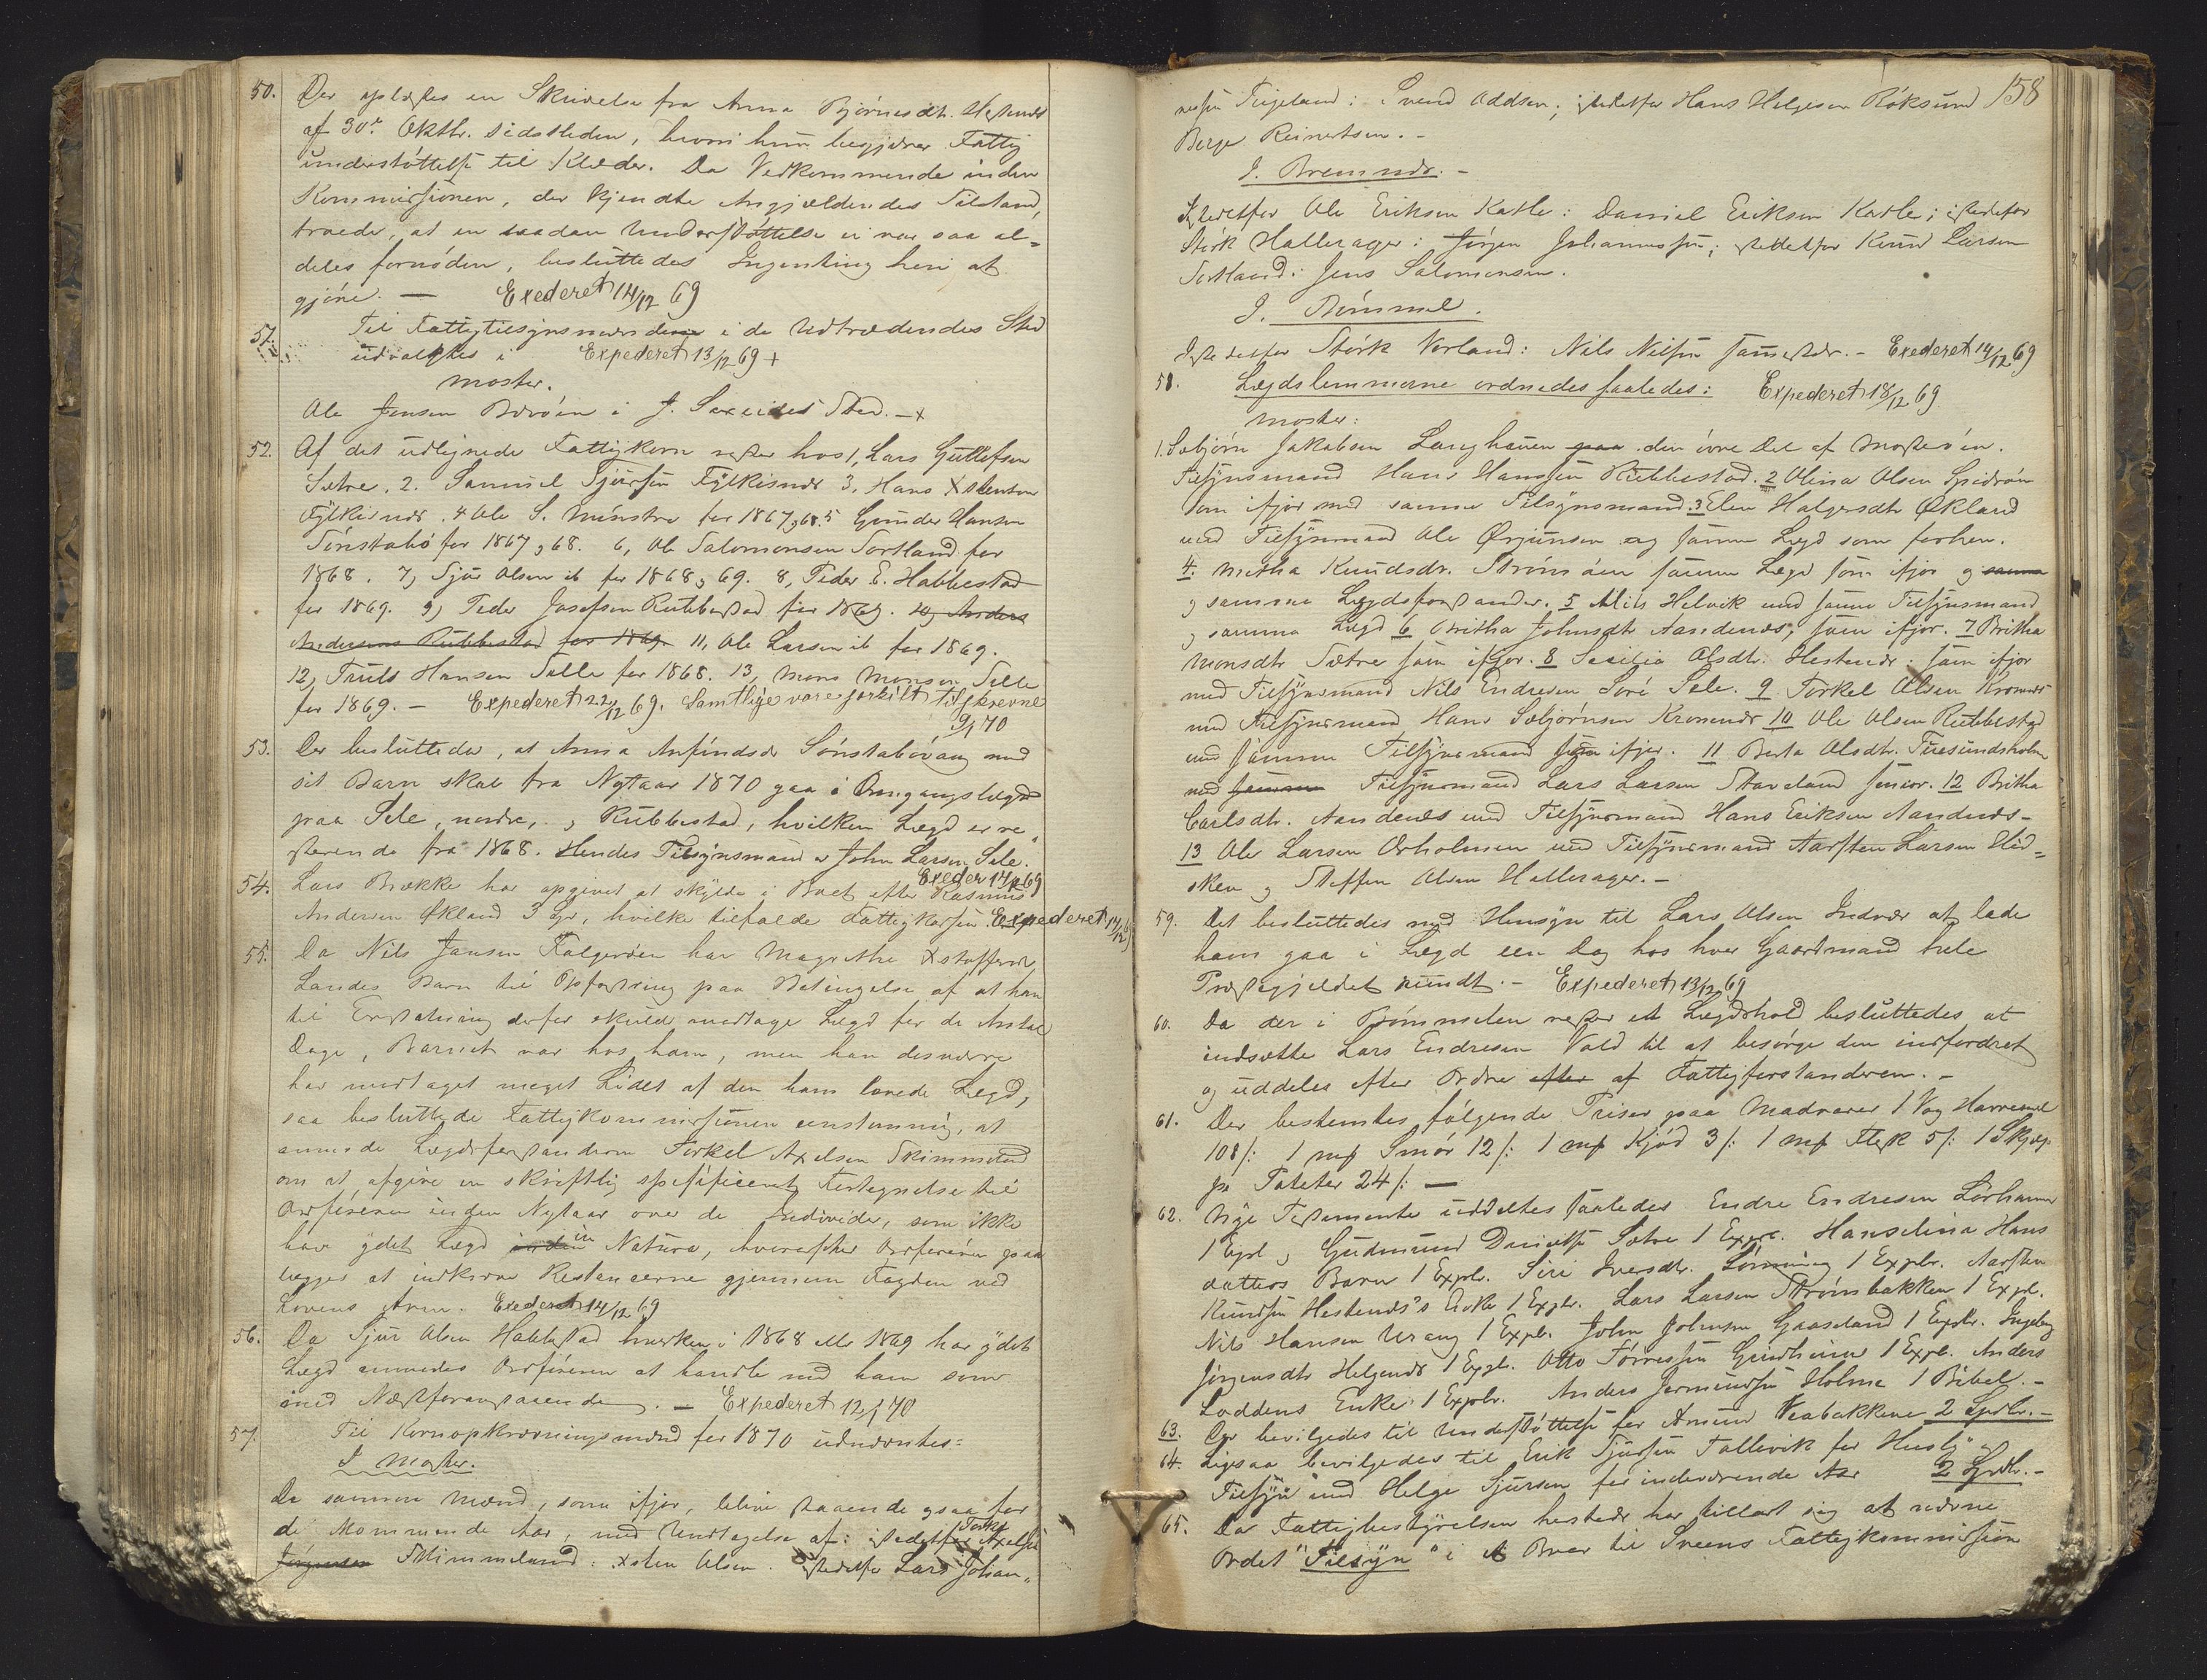 50. Der oplæstes en Skrivelse fra Anna Bjørnesdtr. Hestenes
af 30te Oktbr. sidstleden, hvori hun begjærer Fattig
understøttelse til Klæder. Da Vedkommende inden
Kommissionen, der kjendte Angjældendes Tilstand,
troede, at en saadan Understøttelse ei var saa al=
deles fornøden, besluttedes Ingenting heri at
gjøre. — Exederet 14/12 69
51. Til Fattigtilsynsmændene i de Udtrædendes Sted
udvalgtes i Expederet 13/12 69 +
Moster.
Ole Jensen Bærøen i J. Sæveides Sted. — x
52. Af det udlignede Fattigkorn rester hos 1, Lars Guttelfsen
Sætre, 2. Samuel Sjursen Fylkisnæs 3, Hans Xstensen
Fylkesnæs. 4 Ole S. Mønstre for 1867 og 68. 5 Gunder Hansen
Sønstabø for 1867 og 68. 6, Ole Salomonsen Sortland for
1868. 7, Sjur Olsen ib for 1868 og 69. 8, Peder E. Habbestad
for 1869. 9, Peder Josefsen Rubbestad for 1869. 10, Anders
Andersens Rubbestad for 1869. 11, Ole Larsen ib for 1869.
12, Truls Hansen Sælle for 1868. 13, Mons Monsen Selle
for 1869. — Expederet 22/12 69. Samtlige vare særskilt tilskrevne
9/1 70
53. Der besluttedes, at Anna Anfindsdr Sønstabøvaag med
sit Barn skal fra Nytaar 1870 gaa i Omgangslægd
paa Sele, nordre, og Rubbestad, hvilken Lægd er re
sterende fra 1868. Hendes Tilsynsmand er John Larsen Sele.
Exeder 14/12 69
54. Lars Brække har opgivet at skylde i Boet efter Rasmus
Andersen Økland 3 Spr, hvilke tilfalde Fattigkassen. Expederet 14/12 69
55. Da Nils Jansen Folgerøen har Magrethe Xstoffersdr
Landes Barn til Opfostring paa Betingelse af at han
til Erstatning derfor skulde modtage Lægd for de Antal
Dage, Barnet var hos ham, men han desværre
har modtaget meget Lidet af den ham lovede Lægd,
saa besluttede Fattigkommissionen eenstemmig, at
anmode Lægdsforstanderen Torkel Axelsen Skimmeland
om at afgive en skriftlig spesificeret Fortegnelse til
Ordføreren inden Nytaar over de Individer, som ikke
have ydet Lægd inden in Natura, hvorefter Ordføreren paa
lægges at indkræve Restancerne gjennem Fogden ved
Lovens Arm. Exederet 14/12 69
56. Da Sjur Olsen Habbestad hverken i 1868 eller 1869 har ydet
Lægd anmodes Ordføreren at handle med ham som
med Næstforanstaaende. — Expederet 12/1 70
57. Til Kornopkrævningsmænd for 1870 udnævntes:
I Moster.
De samme Mænd, som ifjor, bleve staaende ogsaa for
de Kommende Aar, med Undtagelse af: istedetfor Torkel Axelsen
Jørgensen Skimmeland: Xsten Olsen. istedetfor Lars Johan=
158
nessen Tugeland: Svend Oddsen; istedetfor Hans Helgesen Røksund
Berge Reinertsen. —
I. Bremnæs. —
Istedetfor Ole Eriksen Katle: Daniel Eriksen Katle; istedetfor
Størk Hallerager: Jørgen Johannessen; istedetfor Knud Larsen
Sortland: Jens Salomonsen.
I. Bømmel.
Istedetfor Størk Vorland: Nils Nilsen sammesteds. — Exederet 14/12 69
58. Lægdslemmerne ordnedes saaledes: Expederet 18/12 69
Moster:
1. Sæbjørn Jakobsen Langhauen paa den øvre Del af Mosterøen.
Tilsynsmand Hans Hanssen Rubbestad. 2 Olina Olsen Spidsøen
som ifjor med samme Tilsynsmand. 3 Elen Halgersdtr Økland
med Tilsynsmand Ole Ørjansen og samme Lægd som forhen.
4. Metha Knudsdr. Strømøen samme Lægd som ifjor og samme
og samme Lægdsforstander. 5 Nils Helvik med samme Tilsynsmand
og samme Lægd 6 Britha Johnsdtr Aandenæs, som ifjor. 7 Britha
Monsdtr Sætre som ifjor. 8 Secilia Olsdtr. Hestenæs, som ifjor
med Tilsynsmand Nils Endresen Søre Sele. 9 Torkel Olsen Kronenes
med Tilsynsmand Hans Sæbjørnsen Kronenæs 10 Ole Olsen Rubbestad
med samme Tilsynsmand som ifjor. 11 Berta Olsdtr. Tuesundsholm
med samme Tilsynsmand Lars Larsen Stavland Junior. 12 Britha
Carlsdtr. Aandenæs med Tilsynsmand Hans Eriksen Aandenæs—
13 Ole Larsen Orholmen med Tilsynsmand Aarsten Larsen Hid=
sken og Steffen Olsen Hallerager. —
59. Det besluttedes med Hensyn til Lars Olsen Indvær at lade
ham gaa i Lægd een Dag hos hver Gaardmand hele
Præstegjeldet rundt. — Expederet 13/12 69
60. Da der i Bømmelen rester et Lægdshold besluttedes at
indsætte Lars Endresen Vold til at besørge den indfordret
og uddeles efter Ordre efter af Fattigforstanderen. —
61. Der bestemtes følgende Priser paa Madvarer 1 Vog Havremel
108 /: 1 mp Smør 12 /: 1 mp Kjød 3 /: 1 mp Flesk 5 /: 1 Skjep
pe Poteter 24 /: —
62. Nye Testamente uddeltes saaledes Endre Endresen Lørhammer
1 Expl og Gudmund Danielsen Sætre 1 Expl. Hanselina Hans
datters Barn 1 Explr. Siri Iversdtr. Lønning 1 Explr. Aarsten
Knudsen Hestenæs's Enke 1 Explr. Lars Larsen Strømbakken 1 Expl.
Nils Hansen Urang 1 Expl. John Johnsen Gaaseland 1 Explr. Ingeborg
Jørgensdtr Helgenæs 1 Expl. Otto Tørresen Grindheim 1 Expl. Anders
Loddens Enke 1 Explr. Anders Jermundsen Holme 1 Bibel. —
63. Der bevilgedes til Understøttelse for Amund Veabakkene 2 Spdlr. —
64. Ligesaa bevilgedes til Erik Sjursen Tollevik for Husly "
Tilsyn" med Helge Sjursen for indeværende Aar 2 Spdlr. —
65. Da Fattigbestyrelsen hersteds har tilladt sig at nævne
Ordet "Tilsyn" i et Brev til Sveens Fattigkommission